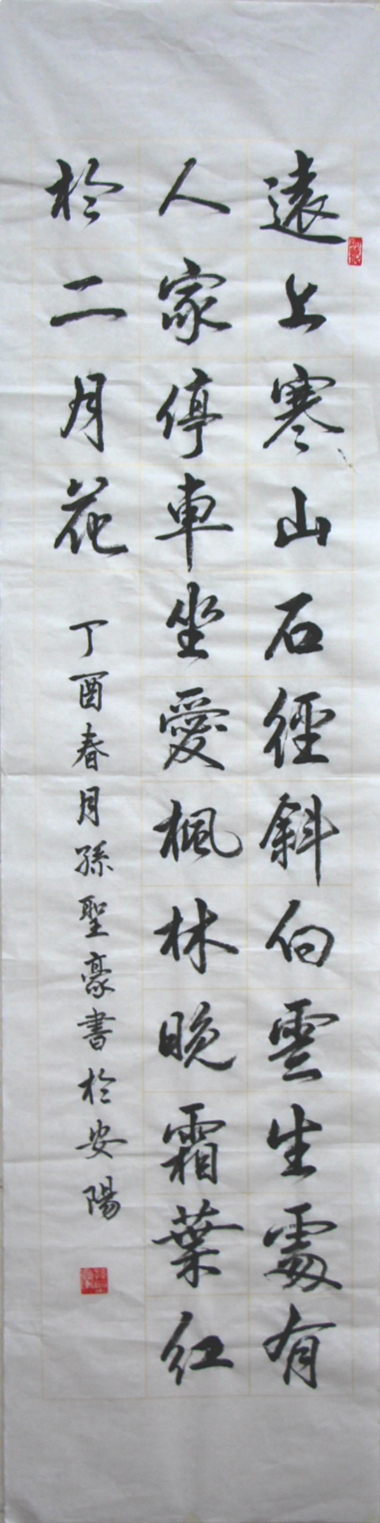 遠上寒山石徑斜白雲生處有
人家停車坐愛楓林晚霜葉紅
於二月花
丁酉春月孫聖豪書於安陽